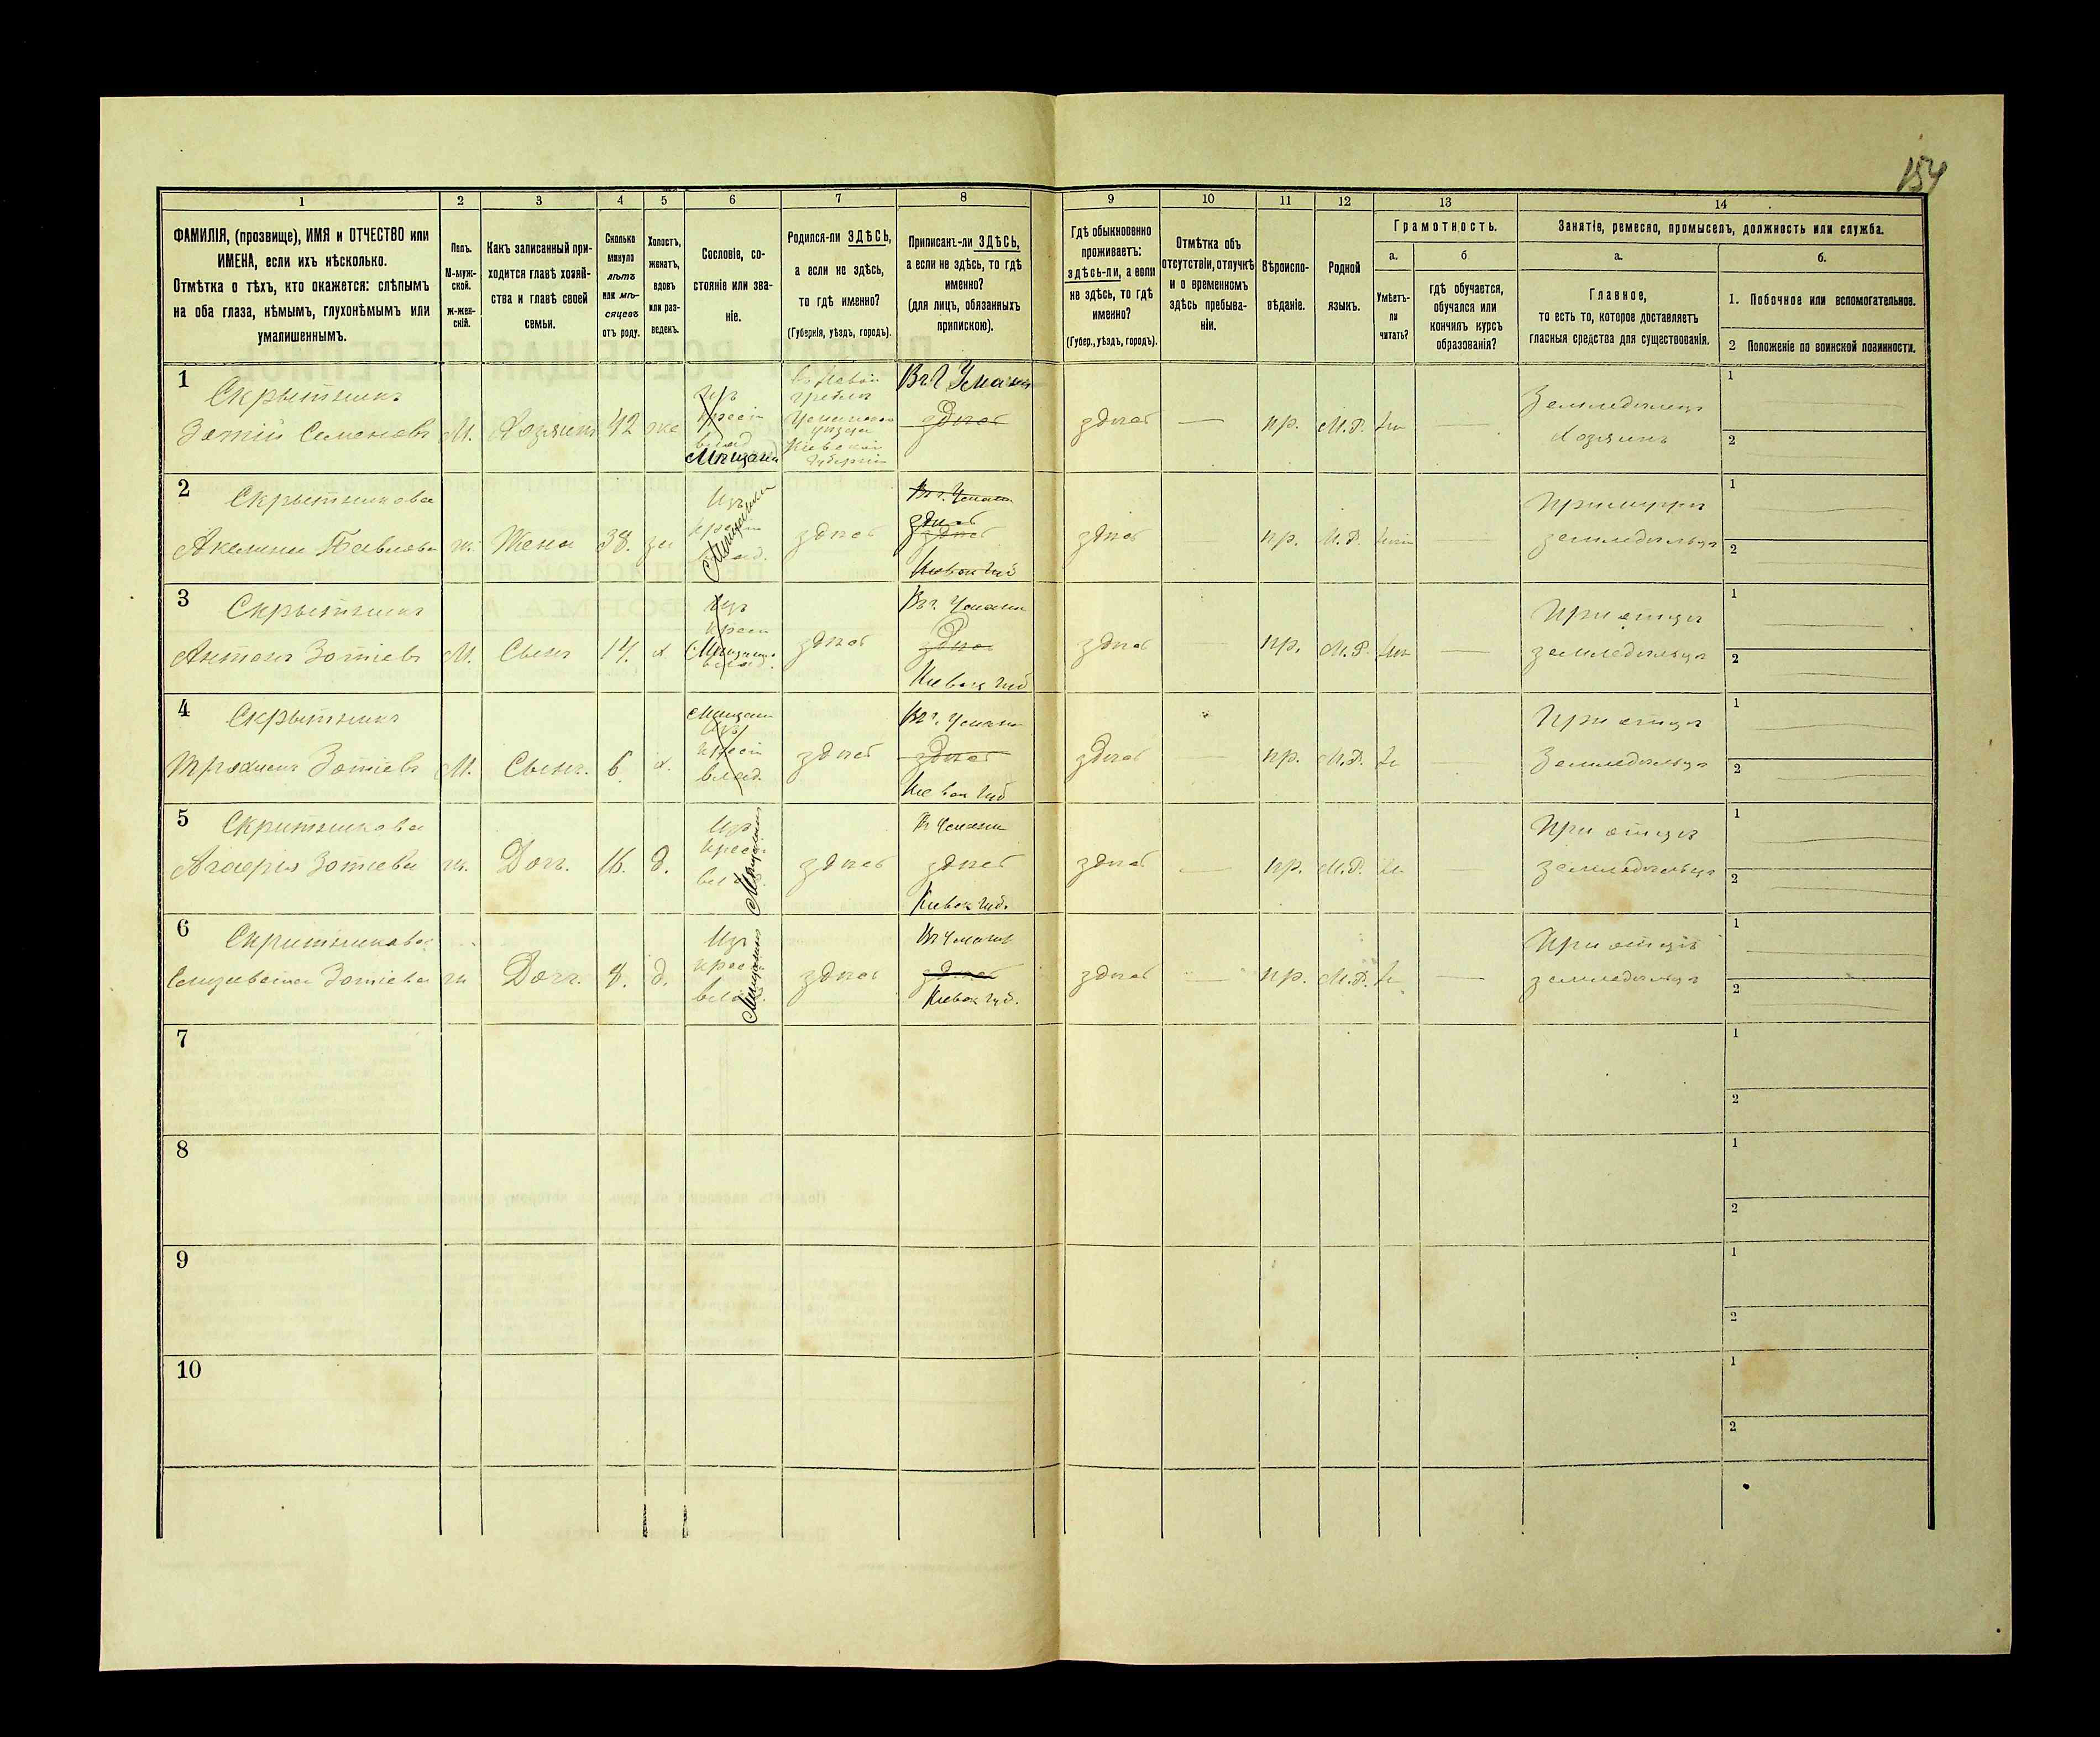 154
1 2 3 4 5 6 7 8 9 10 11 12 13 14
ФАМИЛІЯ, (прозвище), ИМЯ и ОТЧЕСТВО или
ИМЕНА, если ихъ нѣсколько.
Отмѣтка о тѣхъ, кто окажется: слѣпымъ
на оба глаза, нѣмымъ, глухонѣмымъ или
умалишеннымъ.
Полъ.
М-муж-
ской.
ж-жен-
скій.
Какъ записанный при-
ходится главѣ хозяй-
ства и главѣ своей
семьи.
Сколько
минуло
лѣтъ
или мѣ-
сяцевъ
отъ роду.
Холостъ,
женатъ,
вдовъ
или раз-
веденъ.
Сословіе, со-
стояніе или зва-
ніе.
Родился-ли ЗДѢСЬ,
а если не здѣсь,
то гдѣ именно?
(Губернія, уѣздъ, городъ).
Приписанъ-ли ЗДѢСЬ,
а если не здѣсь, то гдѣ
именно?
(для лицъ, обязанныхъ
припискою).
Гдѣ обыкновенно
проживаетъ:
здѣсь-ли, а если
не здѣсь, то гдѣ
именно?
(Губер., уѣздъ, городъ).
Отмѣтка объ
отсутствіи, отлучкѣ
и о временномъ
здѣсь пребыва-
ніи.
Вѣроиспо-
вѣданіе.
Родной
языкъ.
Грамотность.
а.
Умѣетъ-
ли
читать?
б
гдѣ обучается,
обучался или
кончилъ курсъ
образованія?
Занятіе, ремесло, промыселъ, должность или служба.
а.
Главное,
то есть то, которое доставляетъ
гласныя средства для существованія.
б.
1. Побочное или вспомогательное.
2 Положеніе по воинской повинности.
1
Скрытникъ
Зотій Семеновъ М. Хозяинъ 42 же
Мѣщани
Уманскаго
уѣзда
Кіевской
губерніи
Въ г Умани
здѣсь
здѣсь — пр. М.Р.
Земледѣлецъ
Хозяинъ
1
2
2
Скрытникова
Акелина Павлова ж. Жена 38. за
Изъ
Мѣщанки
здѣсь
Въ г. Умани
здѣсь
здѣсь
здѣсь пр. М.Р.
земледѣльца
1
2
3
Скрытникъ
Антонъ Зотіевъ М. Сынъ 14. х
Изъ
крест
здѣсь
Въ г. Умани
здѣсь
Кіевск губ
здѣсь — пр. М.Р.
При отцѣ
земледѣльца
1
2
4
Скрытникъ
Трофимъ Зотіевъ М. Сынъ. 6 х.
Мѣщани
Изъ
влад.
здѣсь
Въ г. Умани
здѣсь
Кіевск губ
здѣсь — пр. М.Р.
При отцѣ
Земледѣльца
1
2
5
Скритникова
Агафія Зотіева ж. Дочь. 16. д.
Изъ
крест
Мѣщанки
здѣсь
Въ Умани
здѣсь
Кіевск губ.
здѣсь — пр. М.Р.
При отцѣ
земледѣльца
1
2
6
Скритникова
Елизавета Зотіева ж Дочь. 8. д.
Изъ
крес
влад.
Мѣщанки
здѣсь
Въ Умани
здѣсь
Кіевск губ.
здѣсь — пр. М.Р.
При отцѣ
земледѣльца
1
2
7
1
2
8
1
2
9
1
2
10
1
2